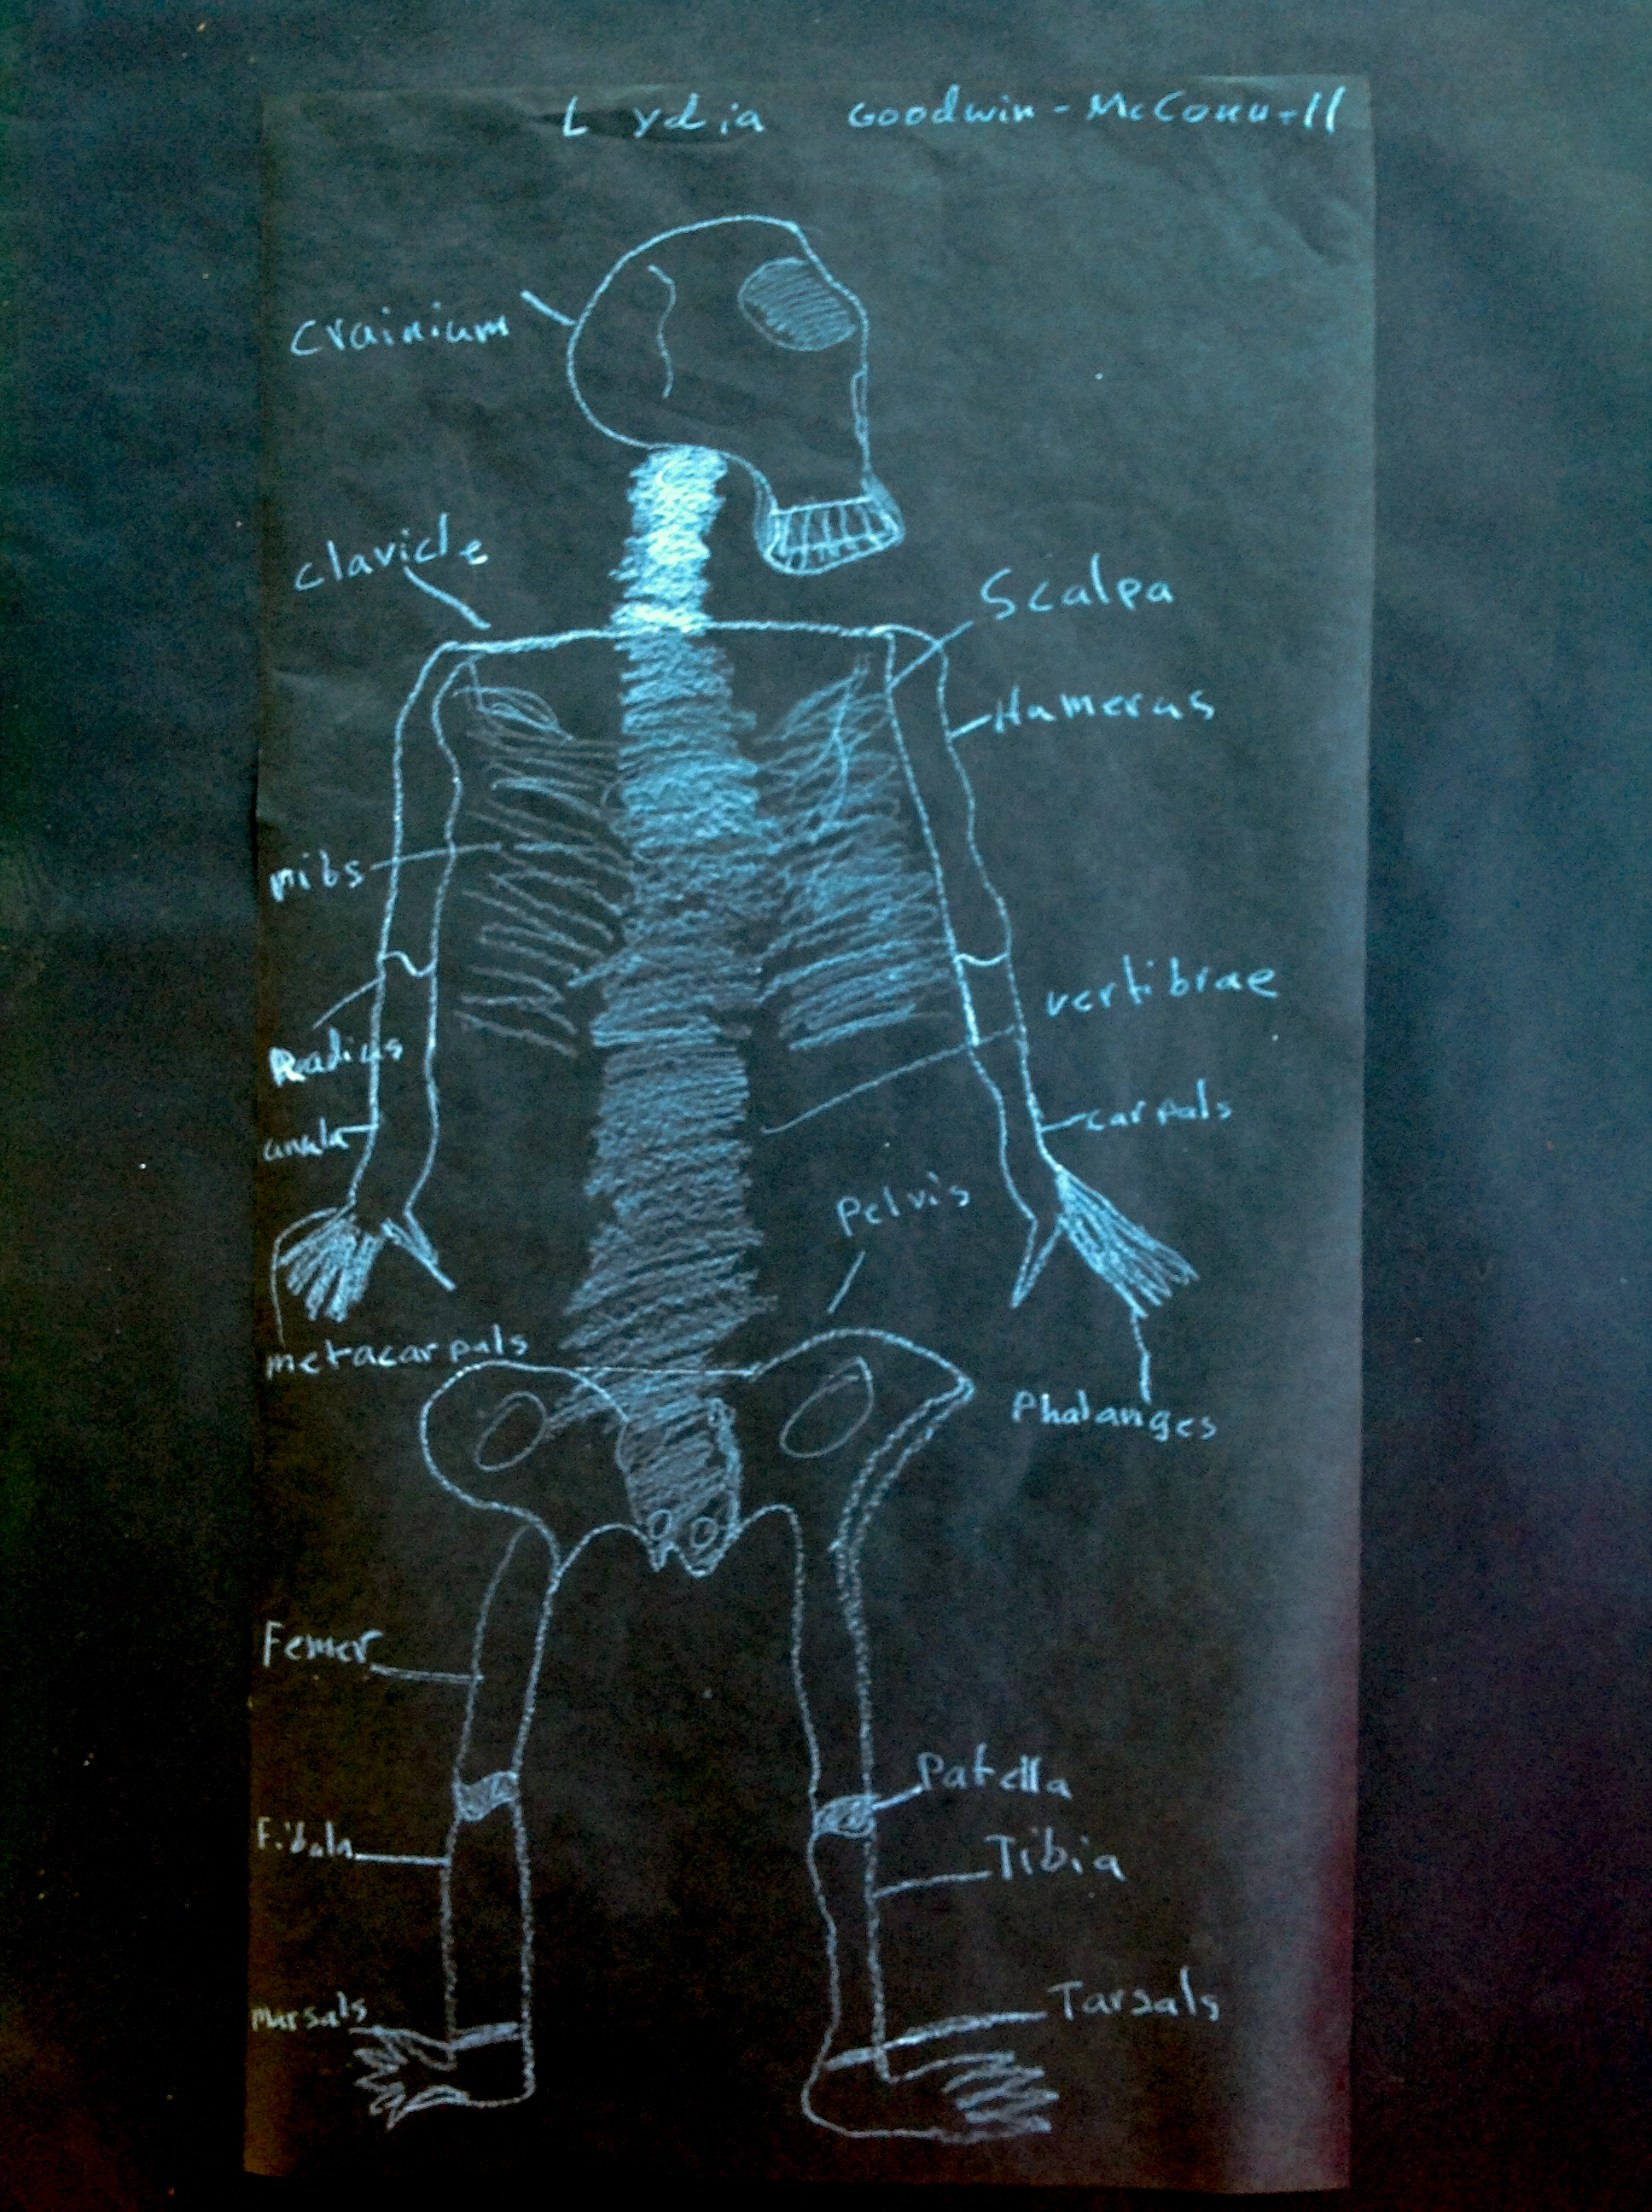 Lydia Goodwin-McConnell
Crainium
Clavicle
Scalpa
Humerus
ribs
vertibrae
Radius
carpals
Pelvis
metacarpals
Phalanges
Femer
Patella
Fibula
Tibia
Tarsals